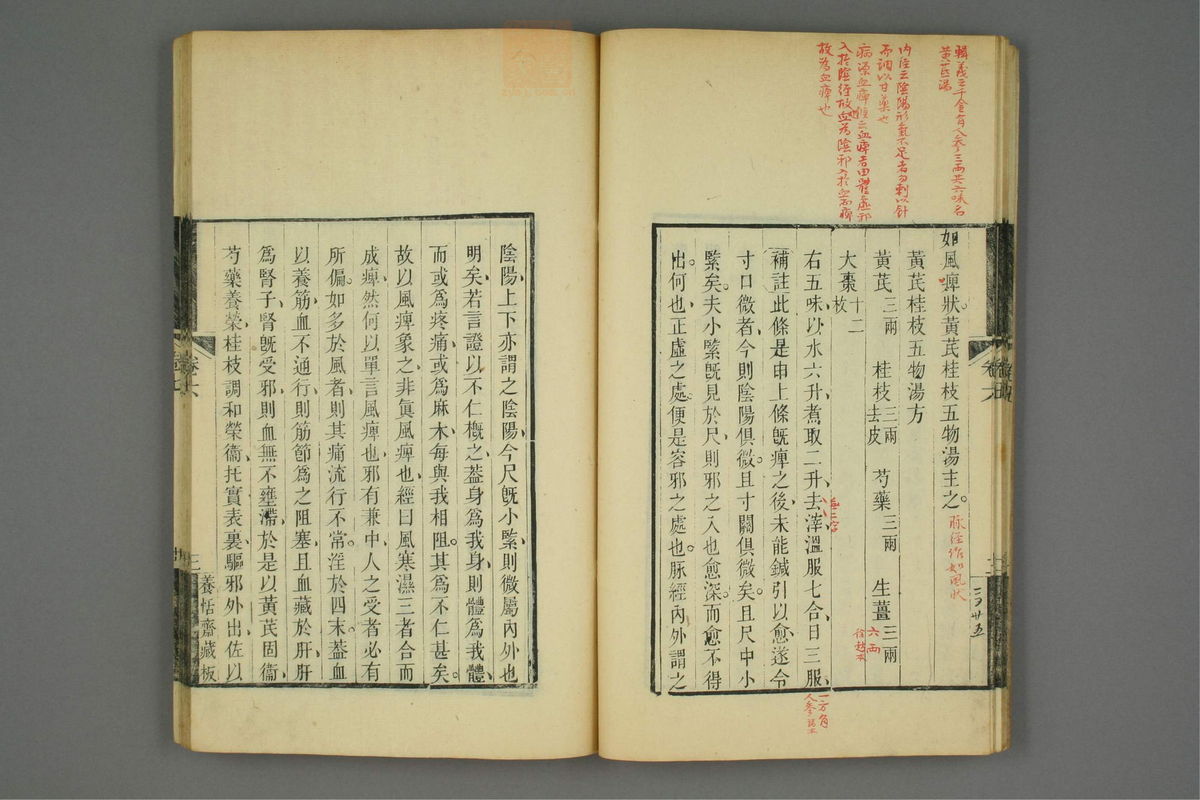 輯義云千金有人參三兩共六味名
黃芪湯
內經云陰陽形氣不足者勿刺以針
而調以甘藥也
病源血痺
云血痺者由體虛邪
入於陰經故也血為陰邪入於血而痺
故為血痺也
如風痺狀黃芪桂枝五物湯主之
脉經作如風狀
黃芪桂枝五物湯方
黃芪三兩 桂枝三兩去皮 芍藥三兩 生薑三兩
六兩
徐
本
大棗十二枚
右五味以水六升煮取二升去滓溫服七合日三服
一方有
人參
補註此條是申上條既痺之後未能鍼引以愈遂令
寸口微者今則陰陽俱微且寸關俱微矣且尺中小
緊矣夫小緊既見於尺則邪之入也愈深而愈不得
出何也正虛之處便是容邪之處也脉經內外謂之
二ノ廿五
陰陽上下亦謂之陰陽今尺既小緊則微屬內外也
明矣若言證以不仁槪之蓋身為我身則體為我體
而或為疼痛或為麻木每與我相阻其為不仁甚矣
故以風痺象之非眞風痺也經曰風寒濕三者合而
成痺然何以單言風痺也邪有兼中人之受者必有
所偏如多於風者則其痛流行不常淫於四末蓋血
以養筋血不通行則筋節為之阻塞且血藏於肝肝
為腎子腎既受邪則血無不壅滯於是以黃芪固衞
芍藥養榮桂枝調和榮衞托實表裏驅邪外出佐以
卷六
養恬齋藏板